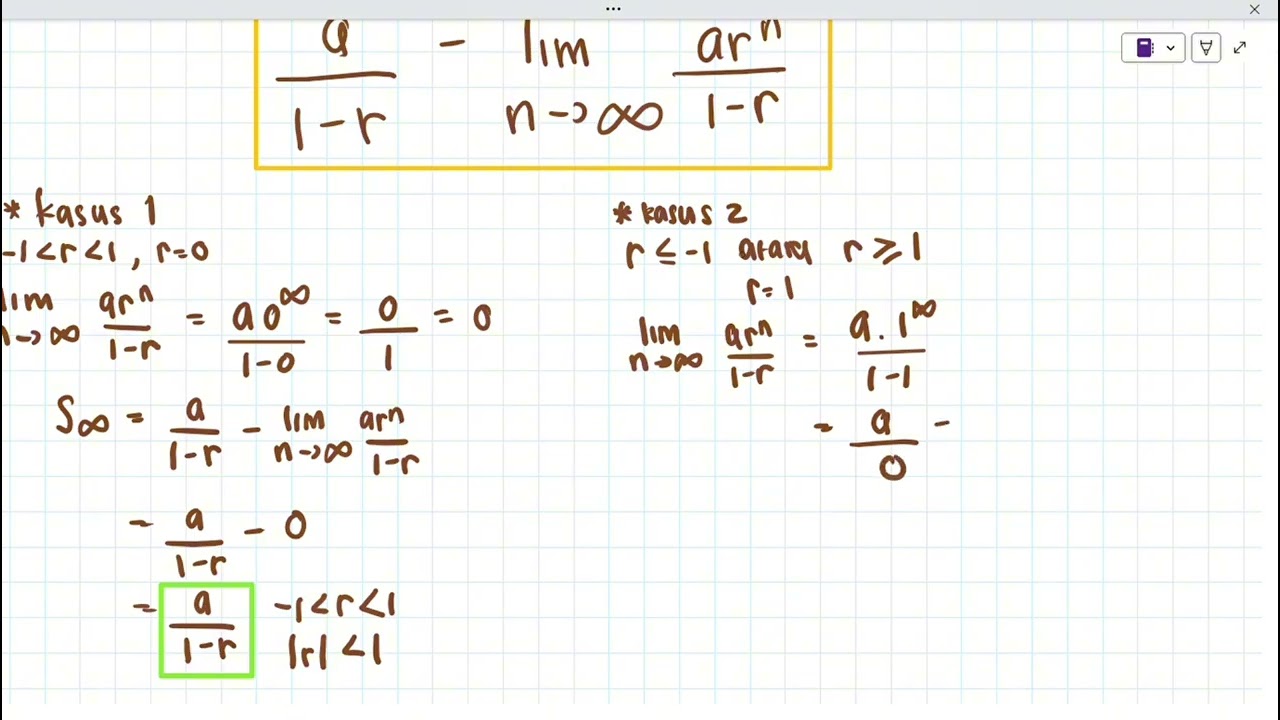 a/(1-r) - lim n→∞ ar^n/(1-r)
* kasus 1
-1<r<1, r=0
lim n→∞ ar^n/(1-r) = a0^∞/(1-0) = 0/1 = 0
S∞ = a/(1-r) - lim n→∞ ar^n/(1-r)
= a/(1-r) - 0
= a/(1-r) -1<r<1
|r|<1
* kasus 2
r ≤ -1 atau r ≥ 1
r=1
lim n→∞ ar^n/(1-r) = a.1^∞/(1-1)
= a/0 -